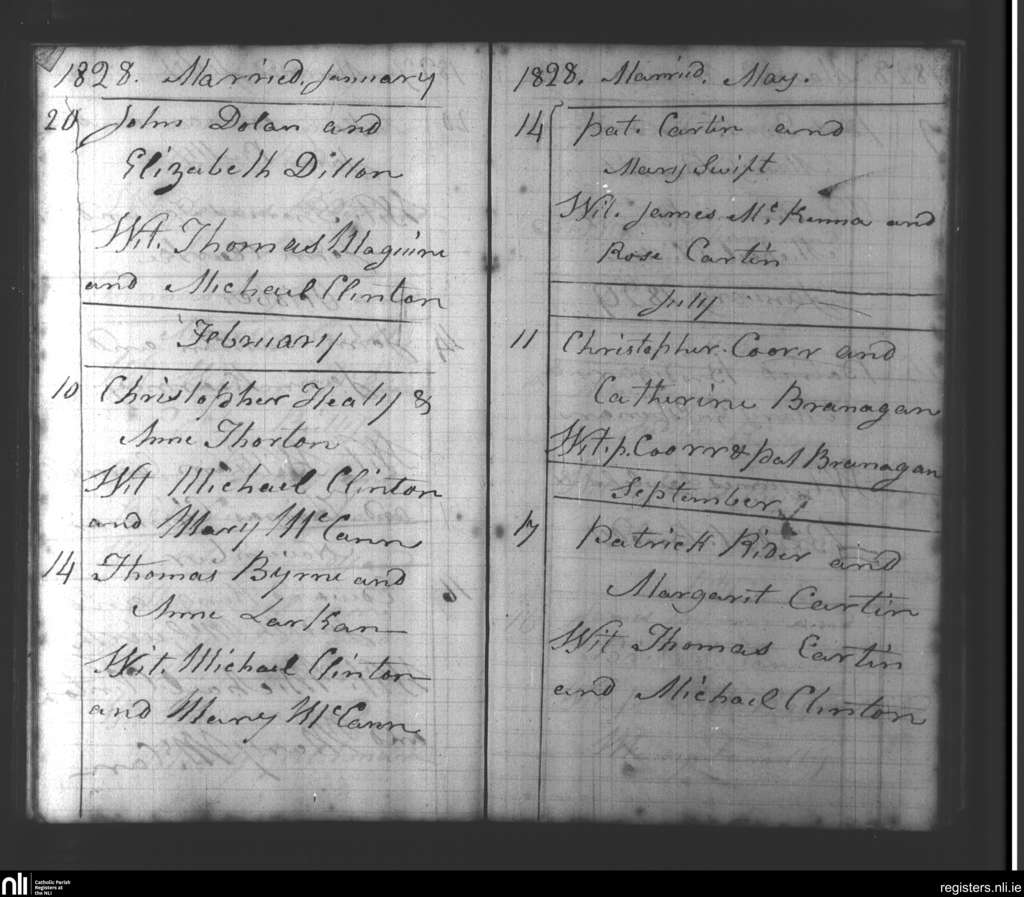 1828. Married. January
20 John Dolan and
Elizabeth Dillon
Wit. Thomas Maguire
and Michael Clinton
February
10 Christopher Healy &
Anne Thorton
Wit Michael Clinton
and Mary McCann
14 Thomas Byrne and
Anne Larkan
Wit. Michael Clinton
and Mary McCann
1828. Married. May.
14 pat. Cartin and
Mary Swift
Wit. James Mc. Kenna and
Rose Cartin
July
11 Christopher Coorr and
Catherine Branagan
Wit. p. Coorr & pat Branagan
September
17 Patrick Rider and
Margaret Cartin
Wit Thomas Cartin
and Michael Clinton
nli
Catholic Parish
Registers at
the NLI
registers.nli.ie